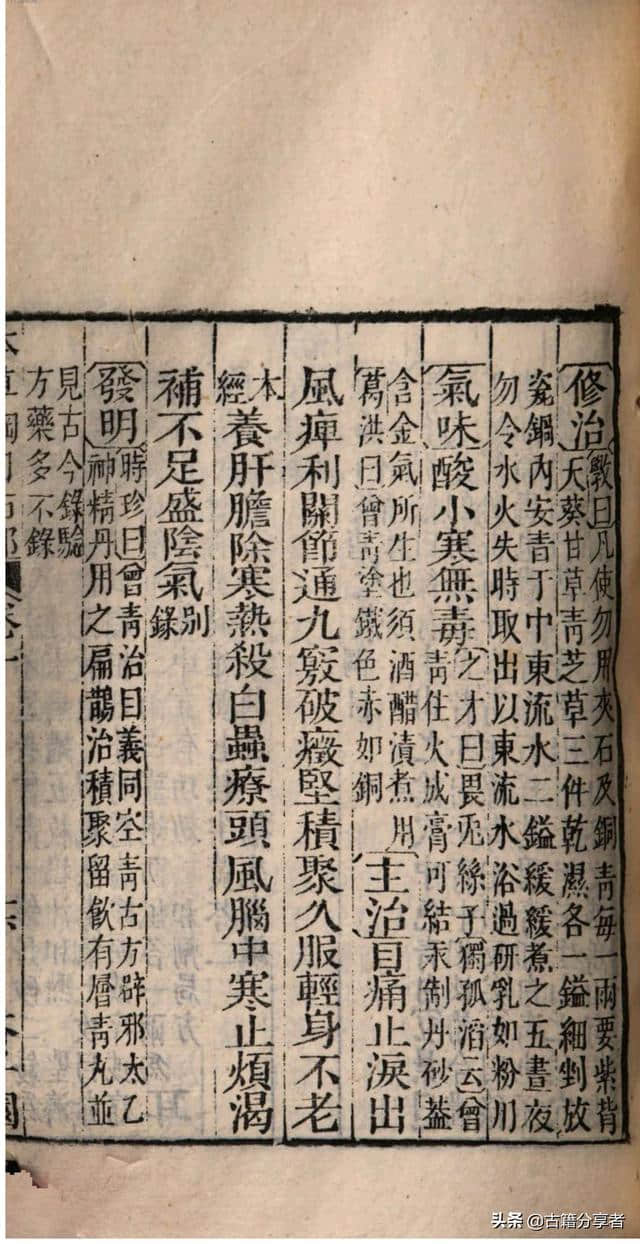 修治
斅曰凡使勿用夾石及銅青每一兩要紫背
天葵甘草青芝草三件乾濕各一鎰細剉放
瓷鍋內安青于中東流水二鎰緩緩煮之五晝夜
勿令水火失時取出以東流水浴過研乳如粉用
氣味酸小寒無毒
之才曰畏兎絲子獨孤滔云曾
青住火成膏可結汞制丹砂葢
含金氣所生也須酒醋漬煮用
葛洪曰曾青塗鐵色赤如銅
主治目痛止淚出
風痺利關節通九竅破癥堅積聚久服輕身不老
本
經
養肝膽除寒熱殺白蟲療頭風腦中寒止煩渴
補不足盛陰氣
別
錄
發明
時珍曰曾青治目義同空青古方辟邪太乙
神精丹用之扁鵲治積聚留飲有層青丸並
見古今錄驗
方藥多不錄
头条 @古籍分享者